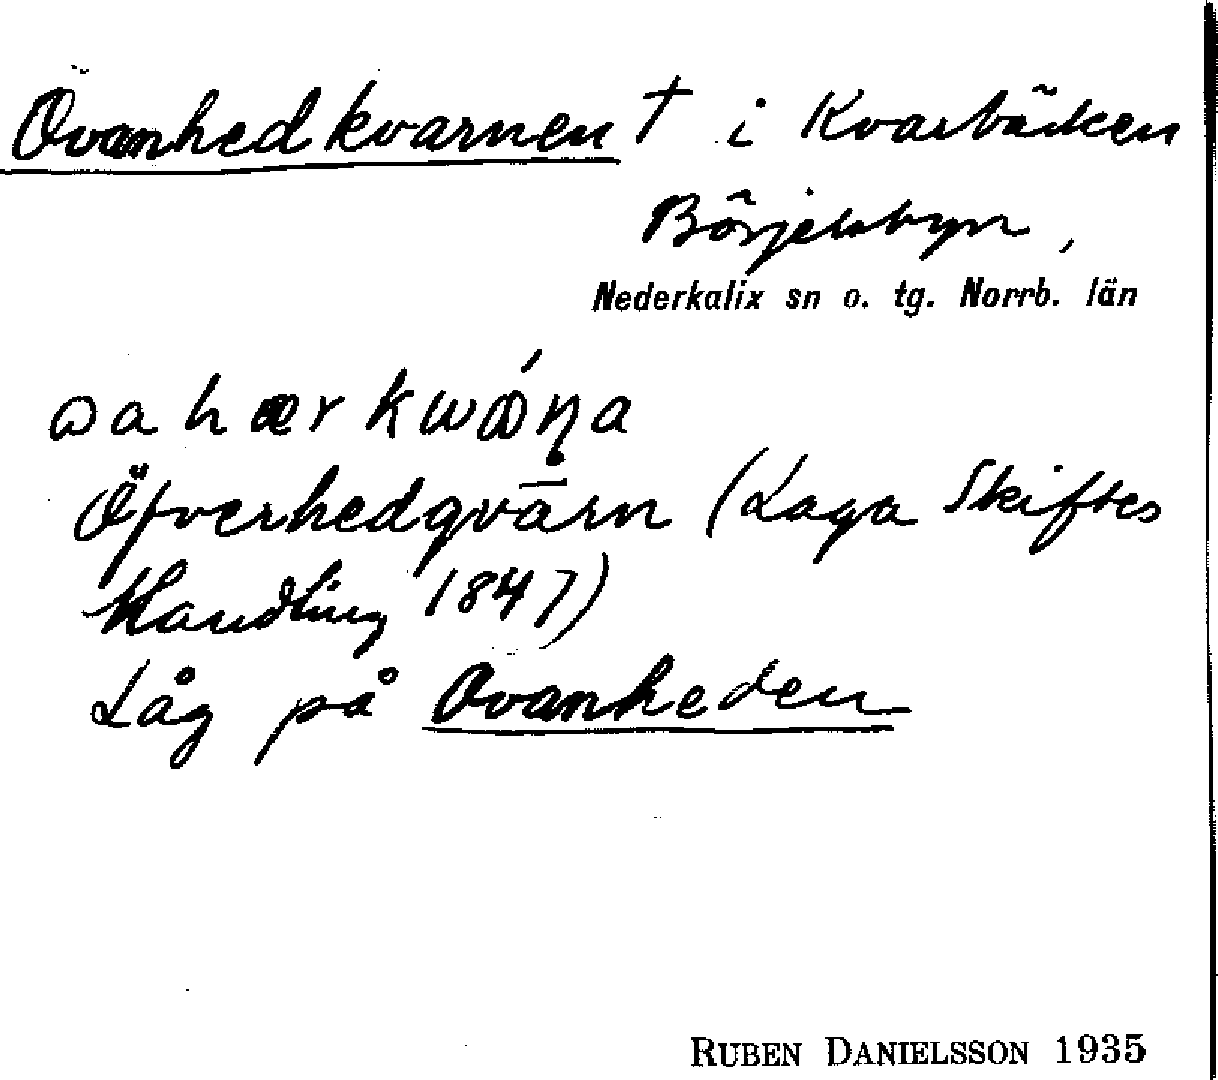 Ovanhedkvarnen † i Kvarbäcken
Börjelsbyn,
Nederkalix sn o. tg. Norrb. län
Öfverhedqvarn (Laga Skiftes
Handling 1847)
Låg på Ovanheden
RUBEN DANIELSSON 1935